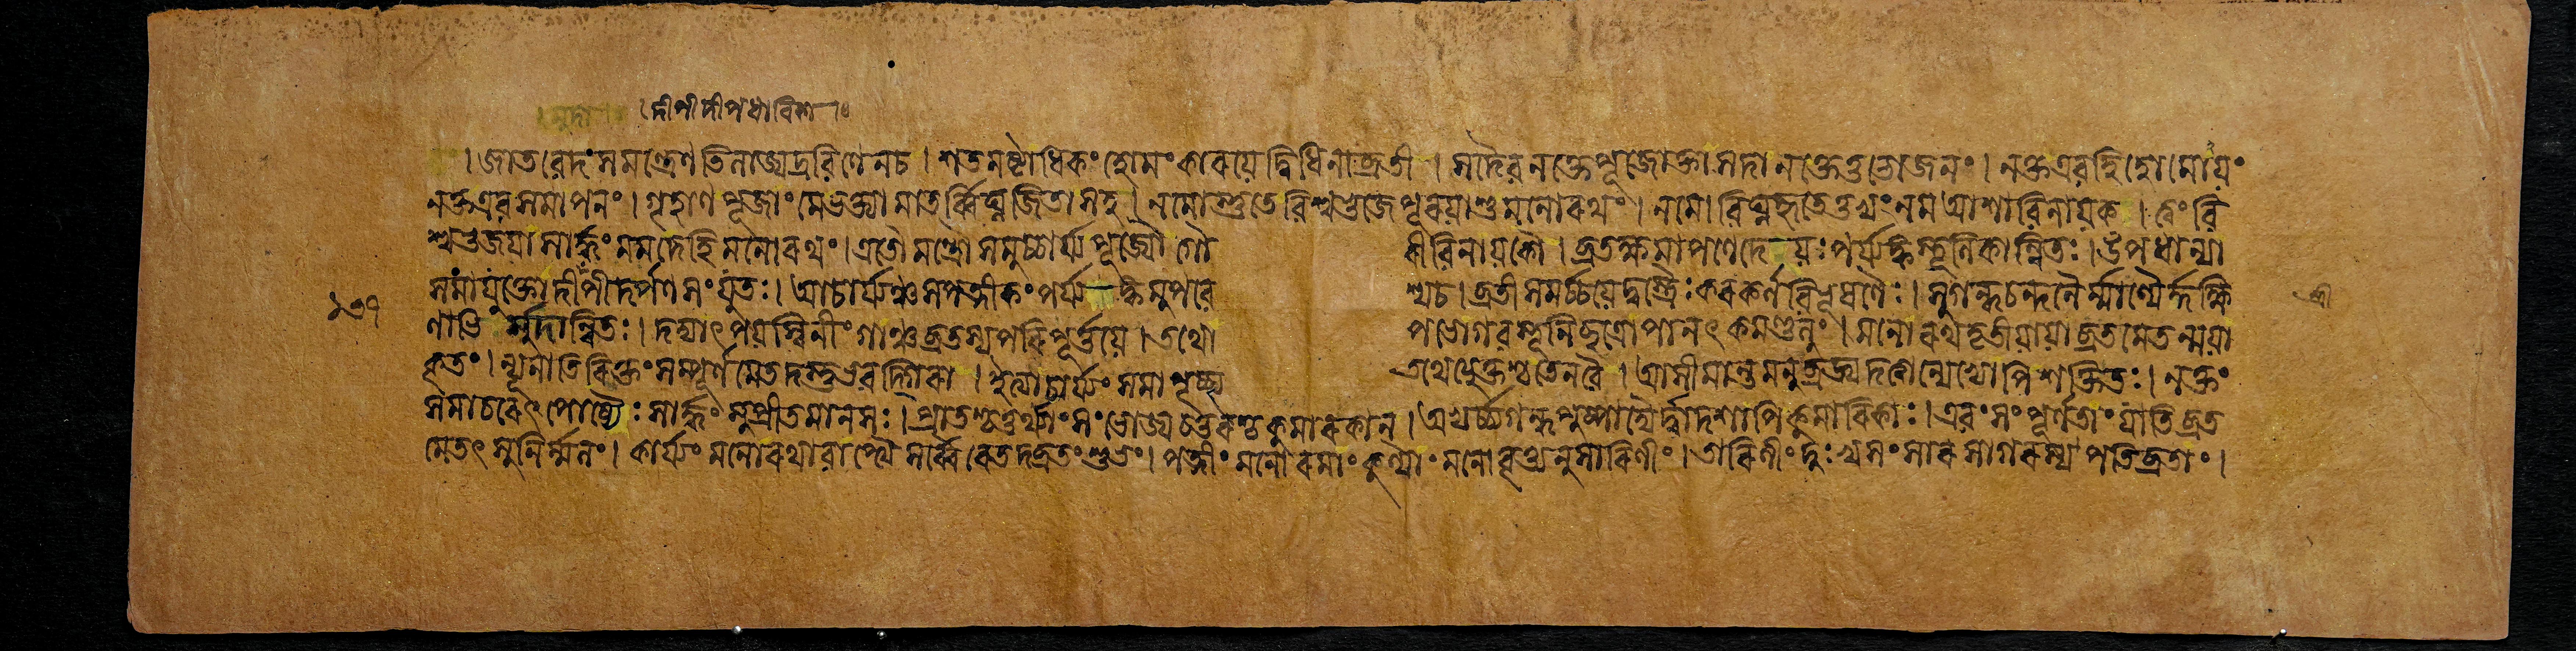 দীপীদীপধাবিকা
। জাতবেদঃ সমন্ত্রেণ তিলাজ্যদ্রবিণেন চ । শতমষ্টাধিকং হোমং কারয়েদ্বিধিনা ব্রতী । সদৈব নক্তে পূজোক্তা সদা নক্তে তু ভোজনং । নক্ত এব হি হোমোয়ং
নক্ত এব সমাপনং । গৃহাণ পূজাং মে ভক্ত্যা মাতর্ব্বিঘ্নজিতা সহ । নমোস্তু তে বিশ্বভুজে পূরয়াশু মনোরথং । নমো বিঘ্নহৃতে তুভ্যং নম আশাবিনায়ক । ত্বং বি
শ্বভুজয়া সার্দ্ধং মম দেহি মনোরথং । এতৌ মন্ত্রৌ সমুচ্চার্য্য পূজ্যৌ গৌ রীবিনায়কৌ । ব্রতক্ষমাপণে দেয়ঃ পর্য্যঙ্কস্তূলিকান্বিতঃ । উপধান্যা
সমাযুক্তো দীপীদর্পণসংযুতঃ । আচার্য্যঞ্চ সপত্নীকং পর্য্যঙ্ক উপবে শ্য চ । ব্রতী সমর্চ্চয়েদ্বস্ত্রৈঃ করকর্ণবিভূষণৈঃ । সুগন্ধচন্দনৈর্ম্মাল্যৈর্দ্দক্ষি
ণাভি র্ম্মুদান্বিতঃ । দদ্যাৎ পয়স্বিনীং গাঞ্চ ব্রতস্য পরিপূর্ত্তয়ে । তথো পভোগবস্তূনি ছত্রোপানৎ কমণ্ডলুং । মনোরথতৃতীয়ায়া ব্রতমেতন্ময়া
কৃতং । ন্যূনাতিরিক্তং সম্পূর্ণমেতদস্তু ভবদ্গিরা । ইত্যাচার্য্যং সমাপৃচ্ছ্য তথেত্যুক্তশ্চ তেন বৈ । আসীমান্তমনুব্রজ্য দত্ত্বান্যেভ্যোপি শক্তিতঃ । নক্তং
সমাচরেৎ পোষ্যৈঃ সার্দ্ধং সুপ্রীতমানসঃ । প্রাতশ্চতুর্থ্যাং সংভোজ্য চতুরশ্চ কুমারকান্ । অভ্যর্চ্চ্য গন্ধপুষ্পাদ্যৈর্দ্দ্বাদশাপি কুমারিকাঃ । এবং সংপূর্ণতাং যাতি ব্রত
মেতৎ সুনির্ম্মলং । কার্য্যং মনোরথাবাপ্ত্যৈ সর্ব্বৈরেতদ্ব্রতং শুভং । পত্নীং মনোরমাং কুল্যাং মনোবৃত্ত্যনুসারিণীং । তারিণীং দুঃখসংসারসাগরস্য পতিব্রতাং ।